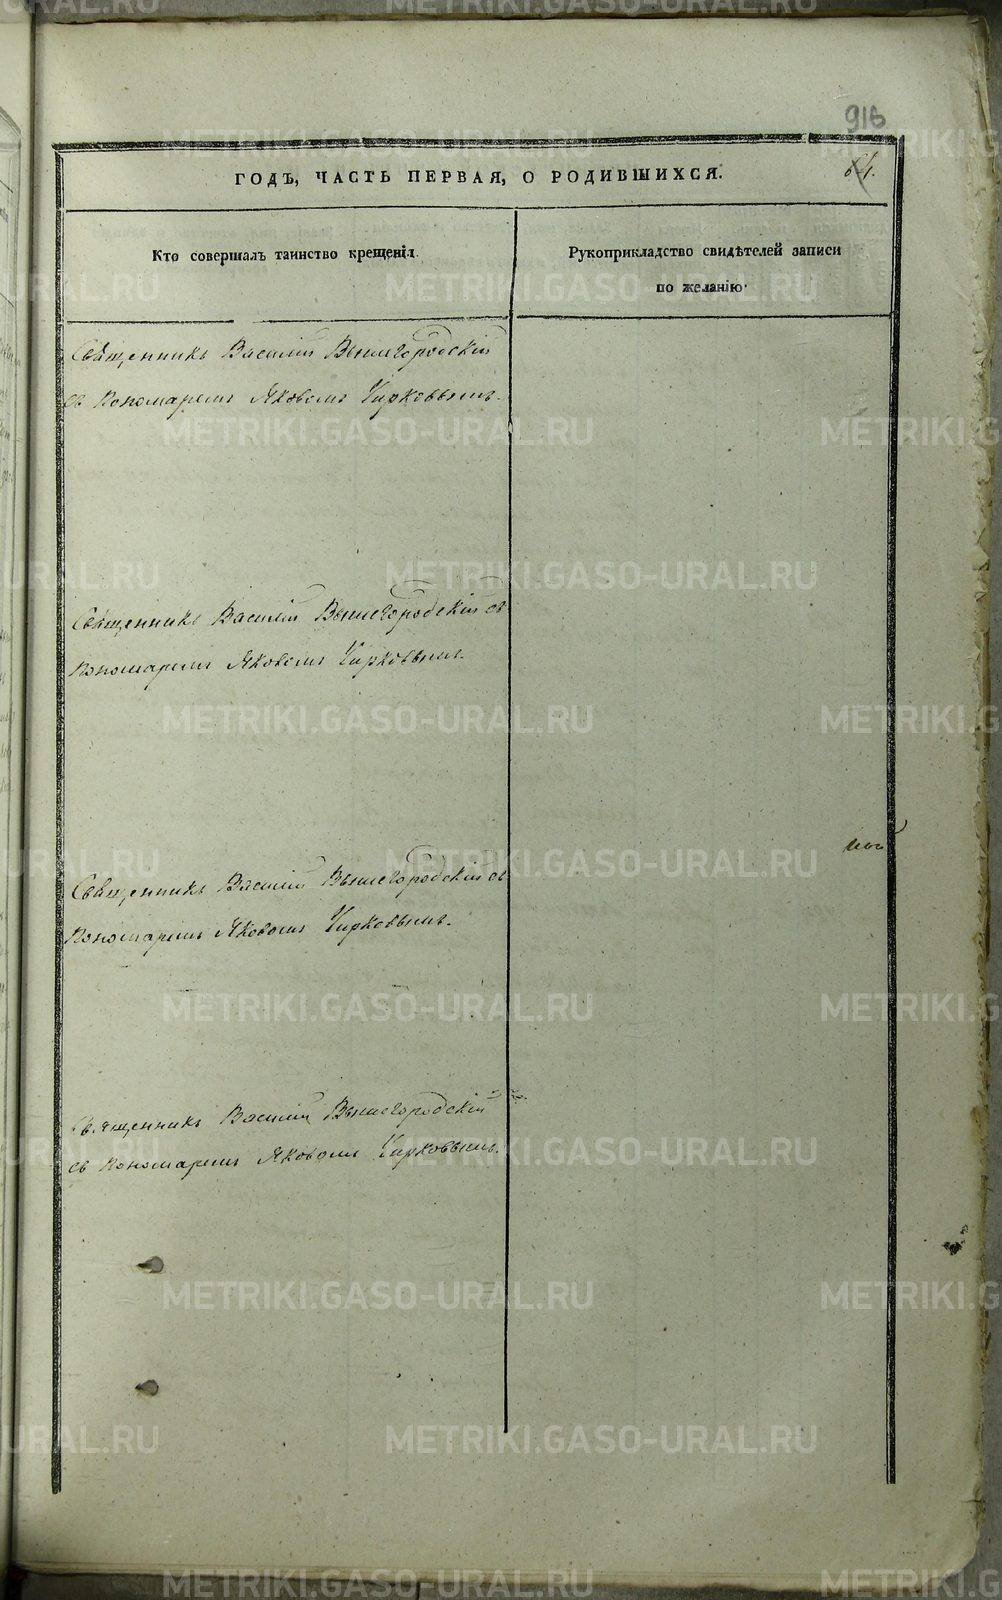 916
64.
ГОДЪ, ЧАСТЬ ПЕРВАЯ, О РОДИВШИХСЯ.
Кто совершалъ таинство крещенія.
Рукоприкладство свидѣтелей записи
по желанію.
Священникъ Василій Вышегородскій
съ Пономаремъ Яковомъ Чирковымъ.
Священникъ Василій Вышегородскій съ
Пономаремъ Яковомъ Чирковымъ.
Священникъ Василій Вышегородскій съ
Пономаремъ Яковомъ Чирковымъ.
Священникъ Василій Вышегородскій
съ Пономаремъ Яковомъ Чирковымъ.
METRIKI.GASO-URAL.RU